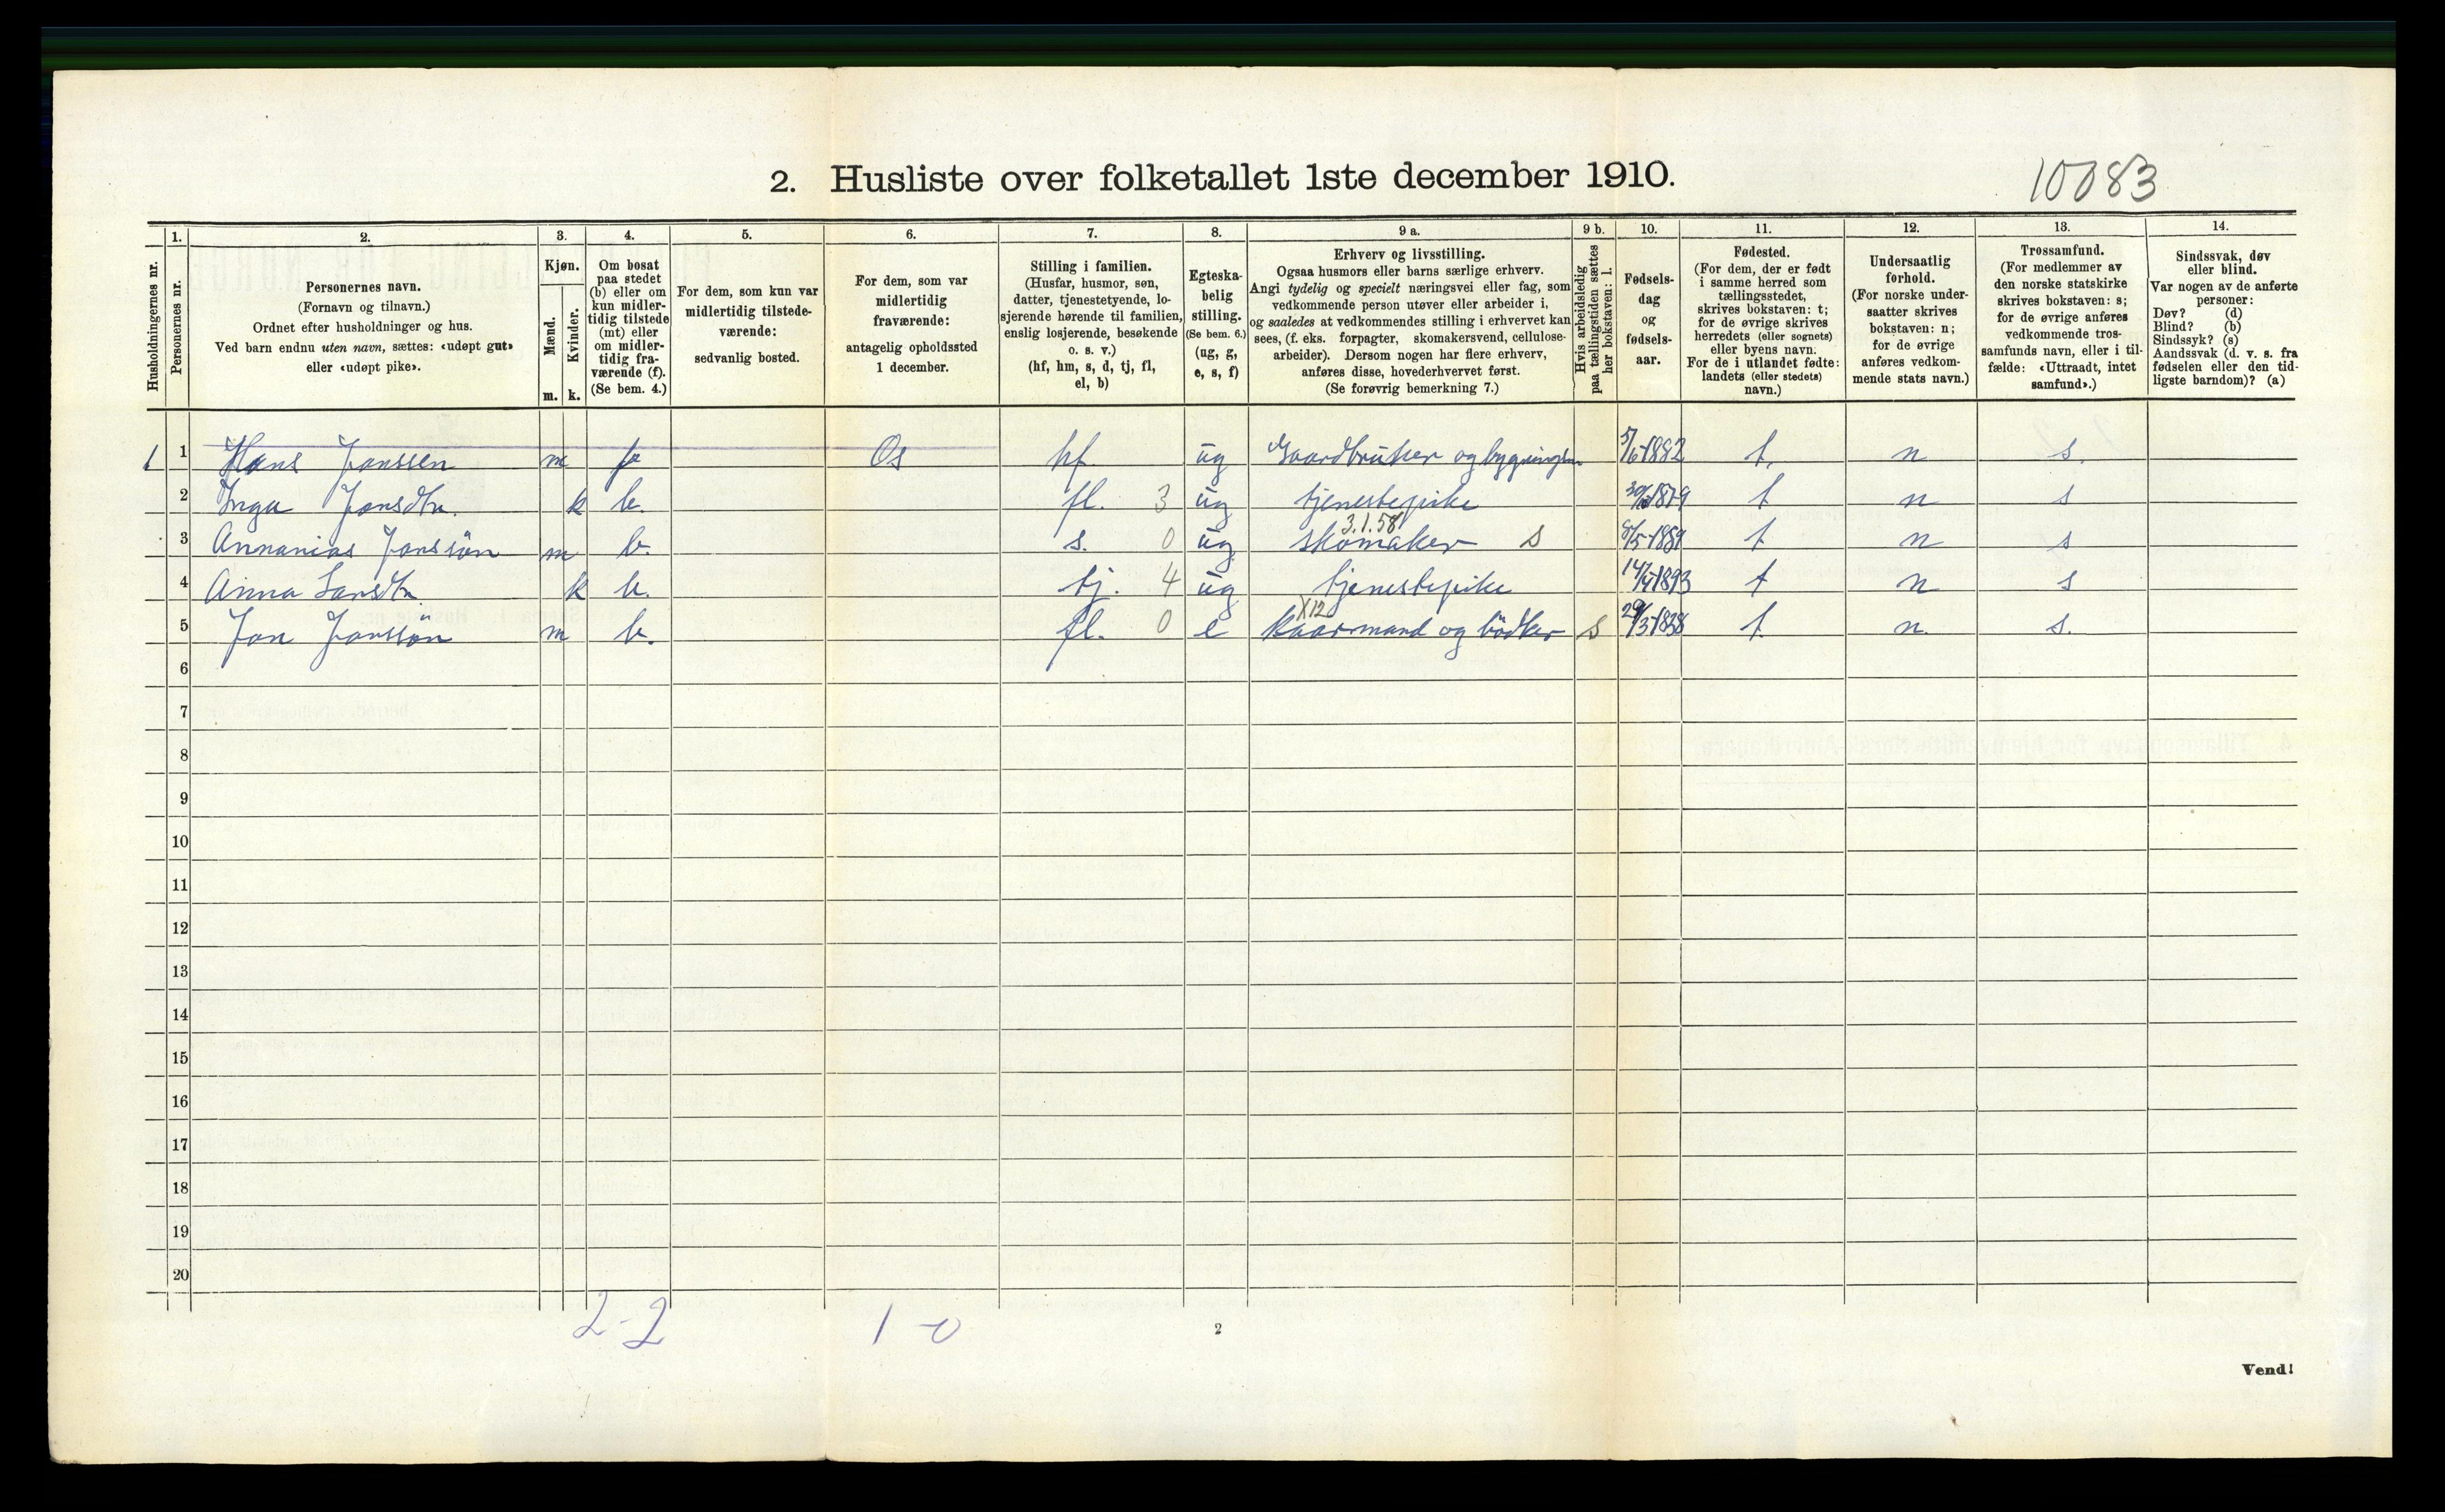 2. Husliste over folketallet 1ste december 1910.
10083
Husholdningernes nr.
1.
Personernes nr.
2.
Personernes navn.
(Fornavn og tilnavn.)
Ordnet efter husholdninger og hus.
Ved barn endnu uten navn, sættes: «udøpt gut»
eller «udøpt pike».
3.
Kjøn.
Mænd.
Kvinder.
m. k.
4.
Om bosat
paa stedet
(b) eller om
kun midler-
tidig tilstede
(mt) eller
om midler-
tidig fra-
værende (f).
(Se bem. 4.)
5.
For dem, som kun var
midlertidig tilstede-
værende:
sedvanlig bosted.
6.
For dem, som var
midlertidig
fraværende:
antagelig opholdssted
1 december.
7.
Stilling i familien.
(Husfar, husmor, søn,
datter, tjenestetyende, lo-
sjerende hørende til familien,
enslig losjerende, besøkende
o. s. v.)
(hf, hm, s, d, tj, fl,
el, b)
8.
Egteska-
belig
stilling.
(Se bem. 6.)
(ug, g,
e, s, f)
9 a.
Erhverv og livsstilling.
Ogsaa husmors eller barns særlige erhverv.
Angi tydelig og specielt næringsvei eller fag, som
vedkommende person utøver eller arbeider i,
og saaledes at vedkommendes stilling i erhvervet kan
sees, (f. eks. forpagter, skomakersvend, cellulose-
arbeider). Dersom nogen har flere erhverv,
anføres disse, hovederhvervet først.
(Se forøvrig bemerkning 7.)
9 b.
Hvis arbeidsledig
paa tællingstiden sættes
her bokstaven: l.
10.
Fødsels-
dag
og
fødsels-
aar.
11.
Fødested.
(For dem, der er født
i samme herred som
tællingsstedet,
skrives bokstaven: t;
for de øvrige skrives
herredets (eller sognets)
eller byens navn.
For de i utlandet fødte:
landets (eller stedets)
navn.)
12.
Undersaatlig
forhold.
(For norske under-
saatter skrives
bokstaven: n;
for de øvrige
anføres vedkom-
mende stats navn.)
13.
Trossamfund.
(For medlemmer av
den norske statskirke
skrives bokstaven: s;
for de øvrige anføres
vedkommende tros-
samfunds navn, eller i til-
fælde: «Uttraadt, intet
samfund».)
14.
Sindssvak, døv
eller blind.
Var nogen av de anførte
personer:
Døv? (d)
Blind? (b)
Sindssyk? (s)
Aandssvak (d. v. s. fra
fødselen eller den tid-
ligste barndom)? (a)
1 1 Hans Janssen m f Os hf ug Gaardbruker og 1882 t. n s.
2 Inga Jansdtr. k b. fl. 3 ug tjenestepike 1879 t n s
3.1.58
3 Annanias Janssön m b. s. 0 ug skomaker s 8/5-1889 t n s
4 Anna Larsdtr. k b. tj. 4 ug tjenestepike 1893 t n s
X12
5 Jan Janssön m b. fl. 0 e kaarmand og bödker s 29/3-1838 t. n. s.
6
7
8
9
10
11
12
13
14
15
16
17
18
19
20
2-2 1-0
2
Vend!